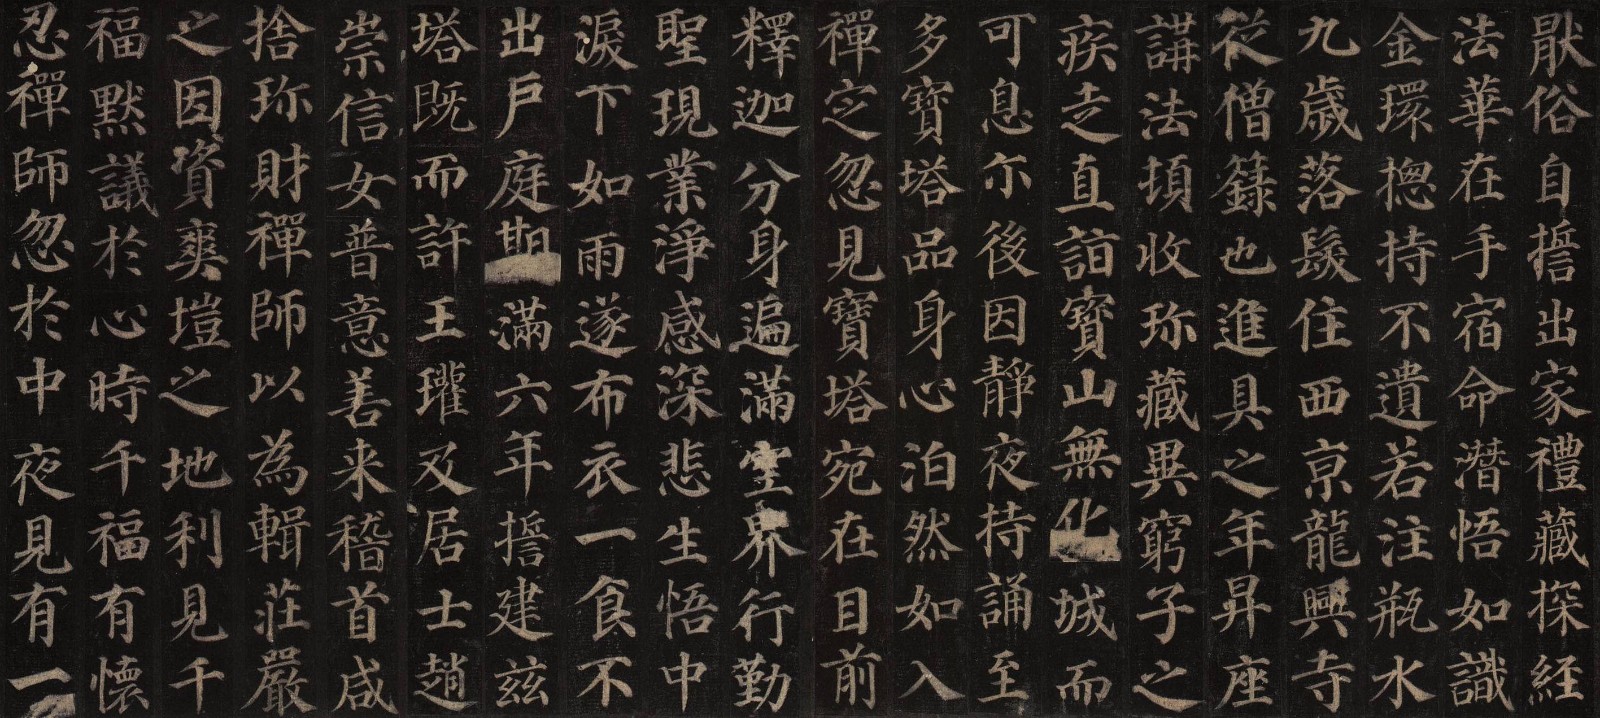 厭俗自誓出家禮藏探經
法華在手宿命潛悟如識
金環揔持不遺若注瓶水
九歲落髮住西京龍興寺
從僧籙也進具之年昇座
講法頓收珎藏異窮子之
疾走直詣寳山無化城而
可息尒後因靜夜持誦至
多寳塔品身心泊然如入
禪定忽見寶塔宛在目前
釋迦分身遍滿空界行勤
聖現業淨感深悲生悟中
淚下如雨遂布衣一食不
出戶庭期滿六年誓建茲
塔既而許王瓘及居士趙
崇信女普意善来稽首咸
捨珎財禪師以為輯莊嚴
之因資爽塏之地利見千
福默議於心時千福有懷
忍禪師忽於中夜見有一